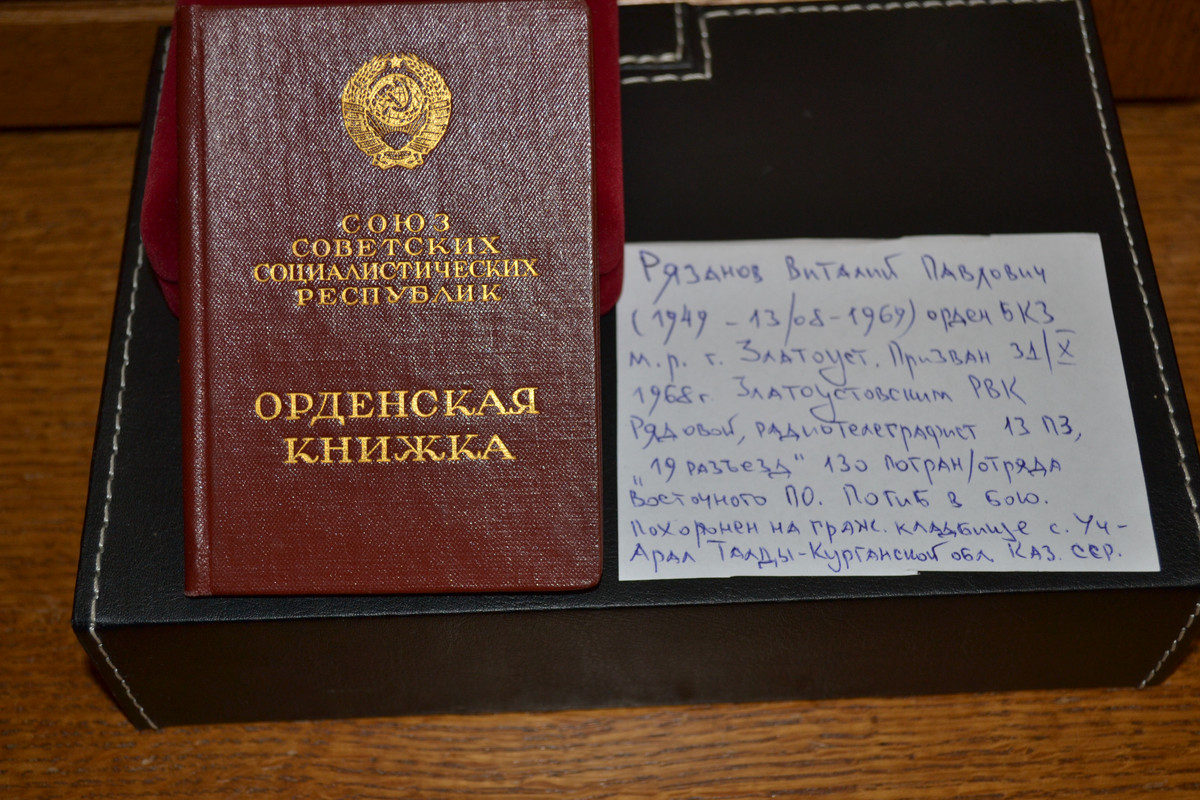 СОЮЗ
СОВЕТСКИХ
СОЦИАЛИСТИЧЕСКИХ
РЕСПУБЛИК
ОРДЕНСКАЯ
КНИЖКА
Рязанов Виталий Павлович
(1949 - 13/08-1969) орден БКЗ
м.р. г. Златоуст. Призван 31/X
1968г. Златоустовским РВК
Рядовой, радиотелеграфист 13 ПЗ,
„19 разъезд" 130 погран/отряда
Восточного ПО. Погиб в бою.
Похоронен на граж. кладбище с. Уч-
Арал Талды-Курганской обл. Каз. ССР.